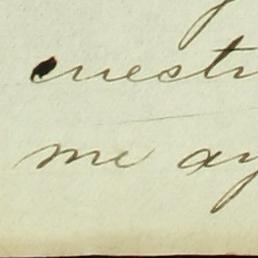 cuestr
me ay